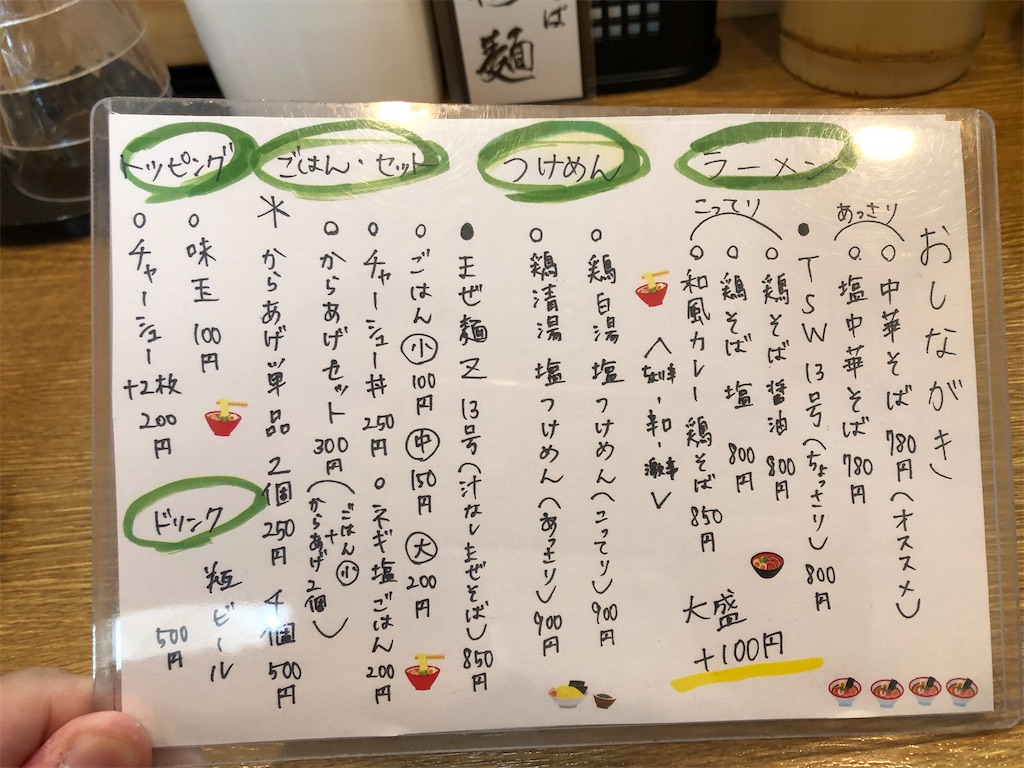 おしながき
ラーメン
あっさり
○中華そば 780円（オススメ）
○塩中華そば 780円
●TSW 13号（ちょっさり）800円
こってり
○鶏そば 醤油 800円
○鶏そば 塩 800円
○和風カレー鶏そば 850円
〈ちょい辛・辛・激辛〉
大盛
+100円
つけめん
○鶏白湯 塩つけめん（こってり）900円
○鶏清湯 塩つけめん（あっさり）900円
●まぜ麺Z 13号（汁なしまぜそば）850円
ごはん・セット
○ごはん 小 100円 中 150円 大 200円
○チャーシュー丼 250円 ○ネギ塩ごはん 200円
○からあげセット 300円（ごはん小+からあげ2個）
＊からあげ単品 2個 250円 4個 500円
トッピング
○味玉 100円
○チャーシュー +2枚 200円
ドリンク
ビール
500円
ば
麺